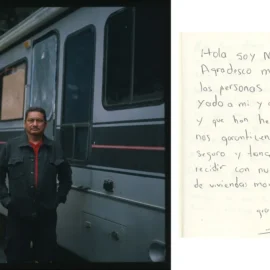 Hola soy N
Agradesco m
las personas
yado a mi y
y que han he
nos garanticen
seguro y
recidir con nu
de vivienda: mo
gra